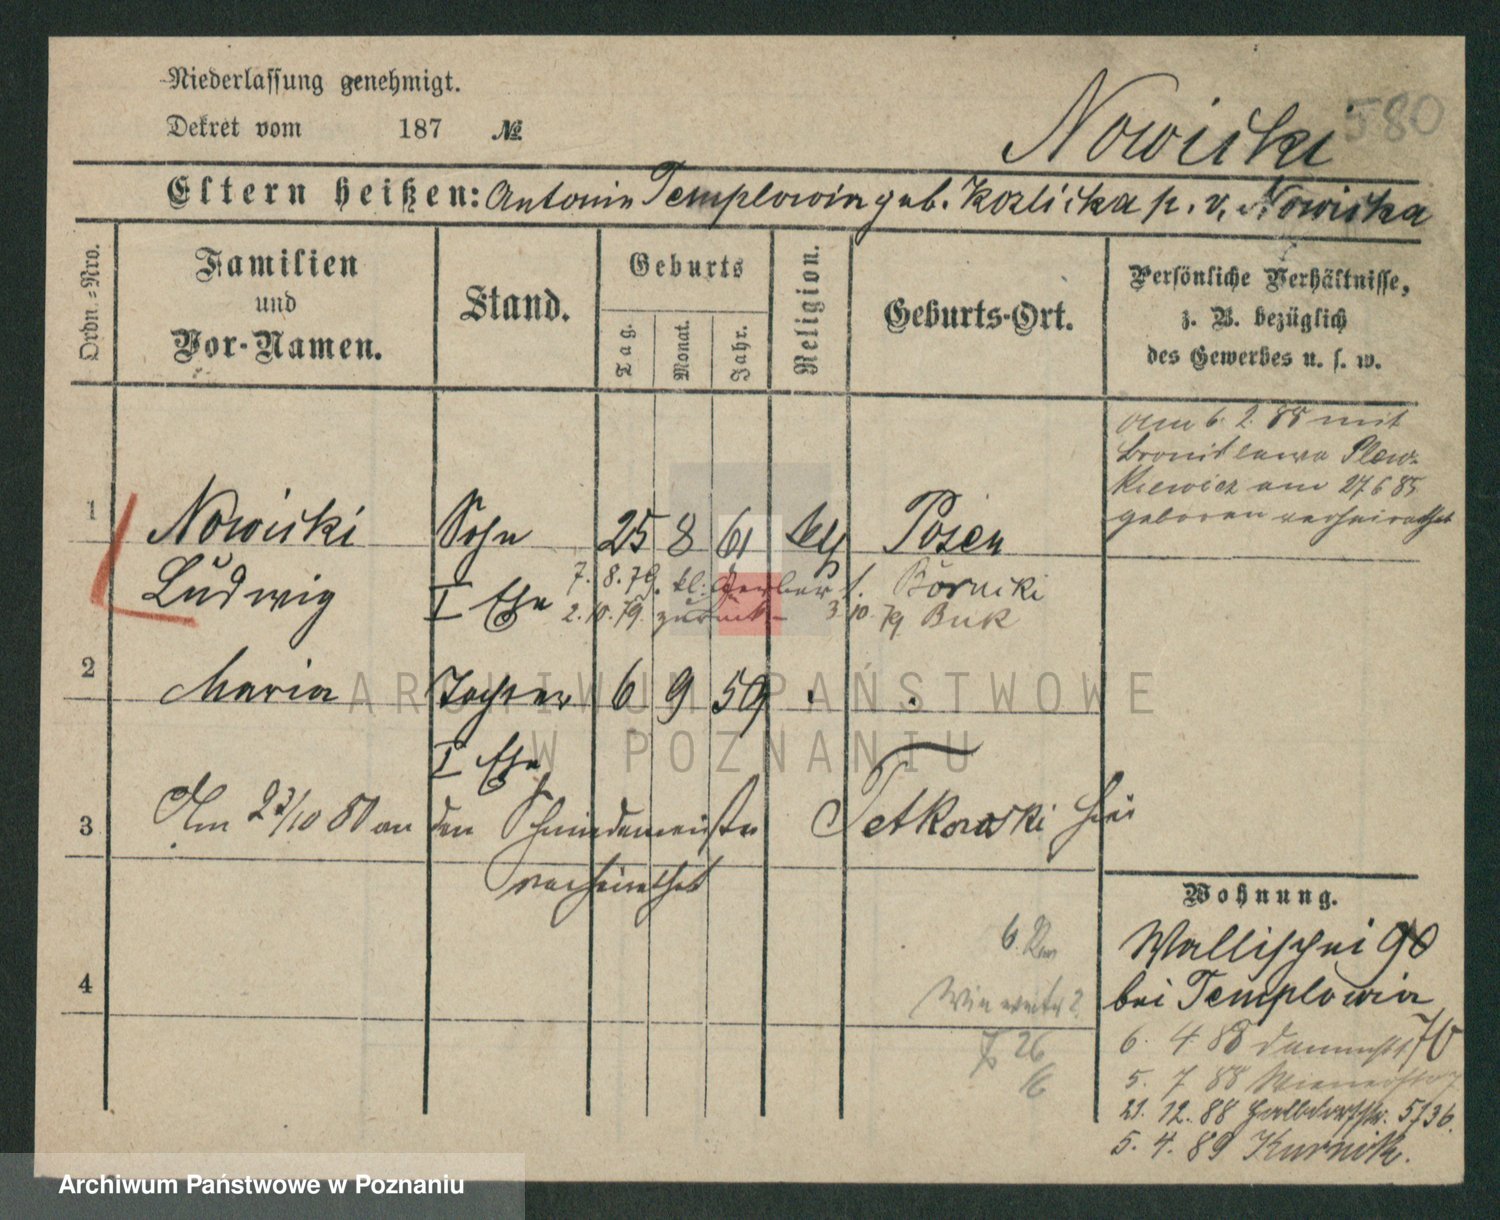 Niederlassung genehmigt.
Dekret vom 187 №
580
Nowicki
Eltern heißen: Antonin Templowin geb. Kozlicka p. v. Nowicka
Ordn.-Nro.
Familien
und
Vor-Namen.
Stand.
Geburts
Tag.
Monat.
Jahr.
Religion.
Geburts-Ort.
Persönliche Verhältnisse,
z. B. bezüglich
des Gewerbes u. s. w.
am 6. 2. 85 mit
Bronislawa Plew-
kiewicz am 27 6 85
geboren verheirathet
1 Nowicki Sohn 25 8 61 Posen
Ludwig I Ehe
7. 8. 79. kl. Gerber f. Bornicki
2. 10. 79. zurück - 3 10. 79 Buk
2 Maria Tochter 6 9 59
I Ehe
3 Am 23/10 80 an den Schmiedemeister Tetkowski hier
verheirathet
4
Wohnung.
Wallischei 90
bei Templowin
6. 4 88 70
5. 7 88
21. 12. 88 Halbdorfstr. 5/36.
5. 4. 89 Kurnik.
6.
26
16
ARCHIWUM PAŃSTWOWE
W POZNANIU
Archiwum Państwowe w Poznaniu